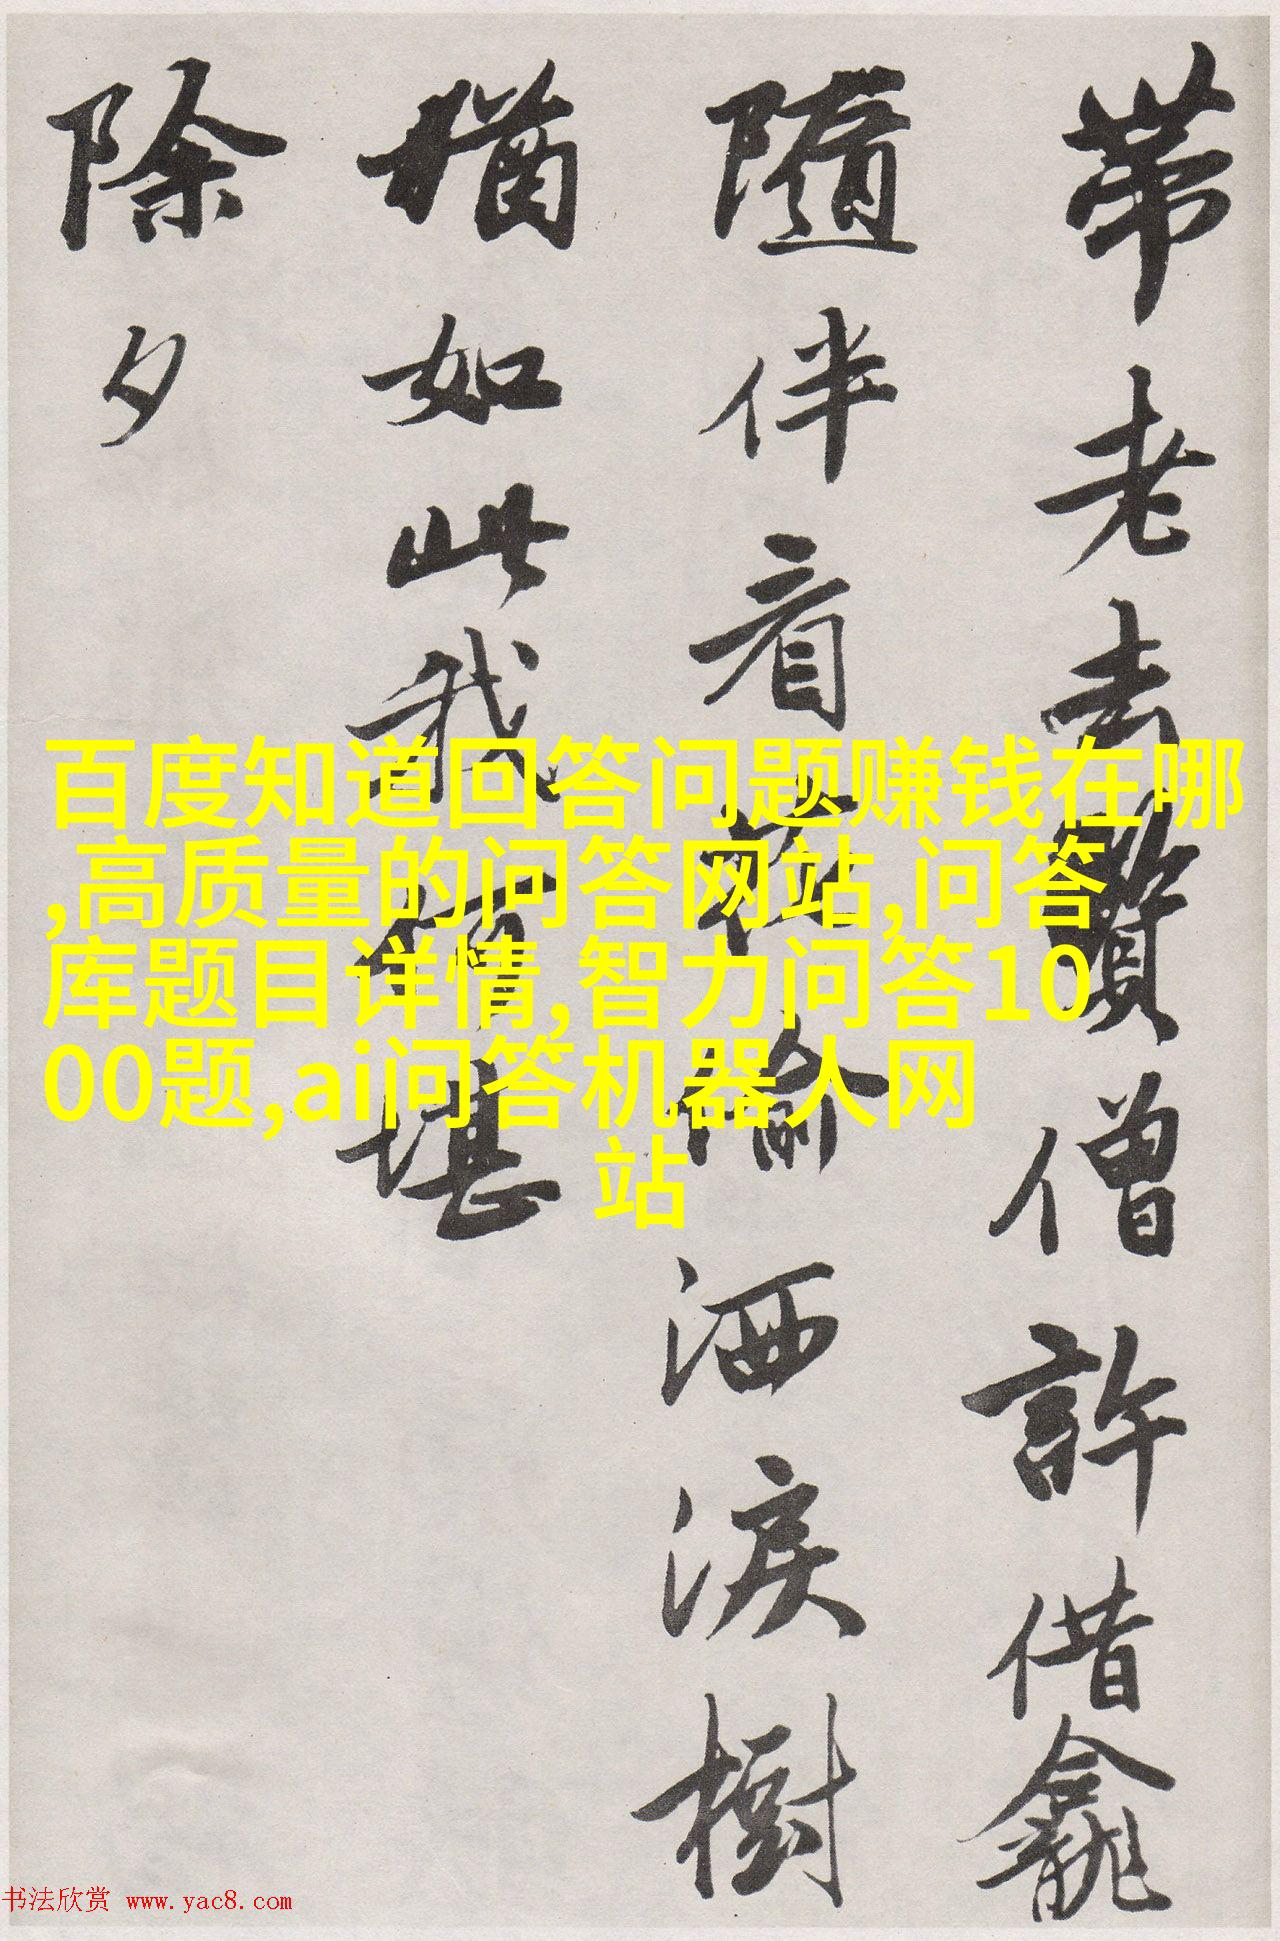 帶老去賢僧許借龕
隨伴看花偷洒淚樹
猶如此我何堪
除夕
百度知道回答问题赚钱在哪
,高质量的问答网站,问答
库题目详情,智力问答10
00题,ai问答机器人网
站
书法欣赏 www.yac8.com